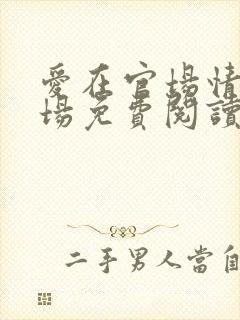 愛在官場情
場免費閱讀
二手男人當自